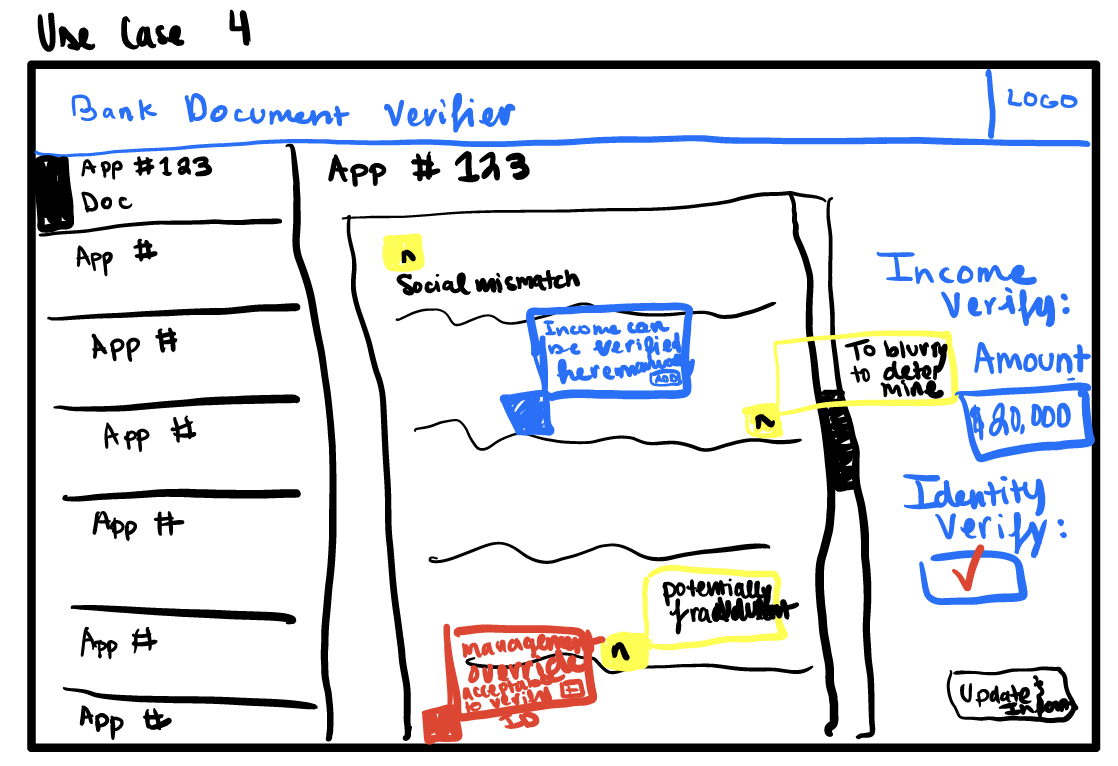 Use Case 4
Bank Document Verifier
LOGO
App #123
Doc
App #
App #
App #
App #
App #
App #
App # 123
n
Social mismatch
Income can
be verified
here
ADD
To blurry
to deter
mine
n
potentially
n
management
override
acceptable
to verify
ID
Income
Verify:
Amount
$20,000
Identity
Verify:
Update &
Inform